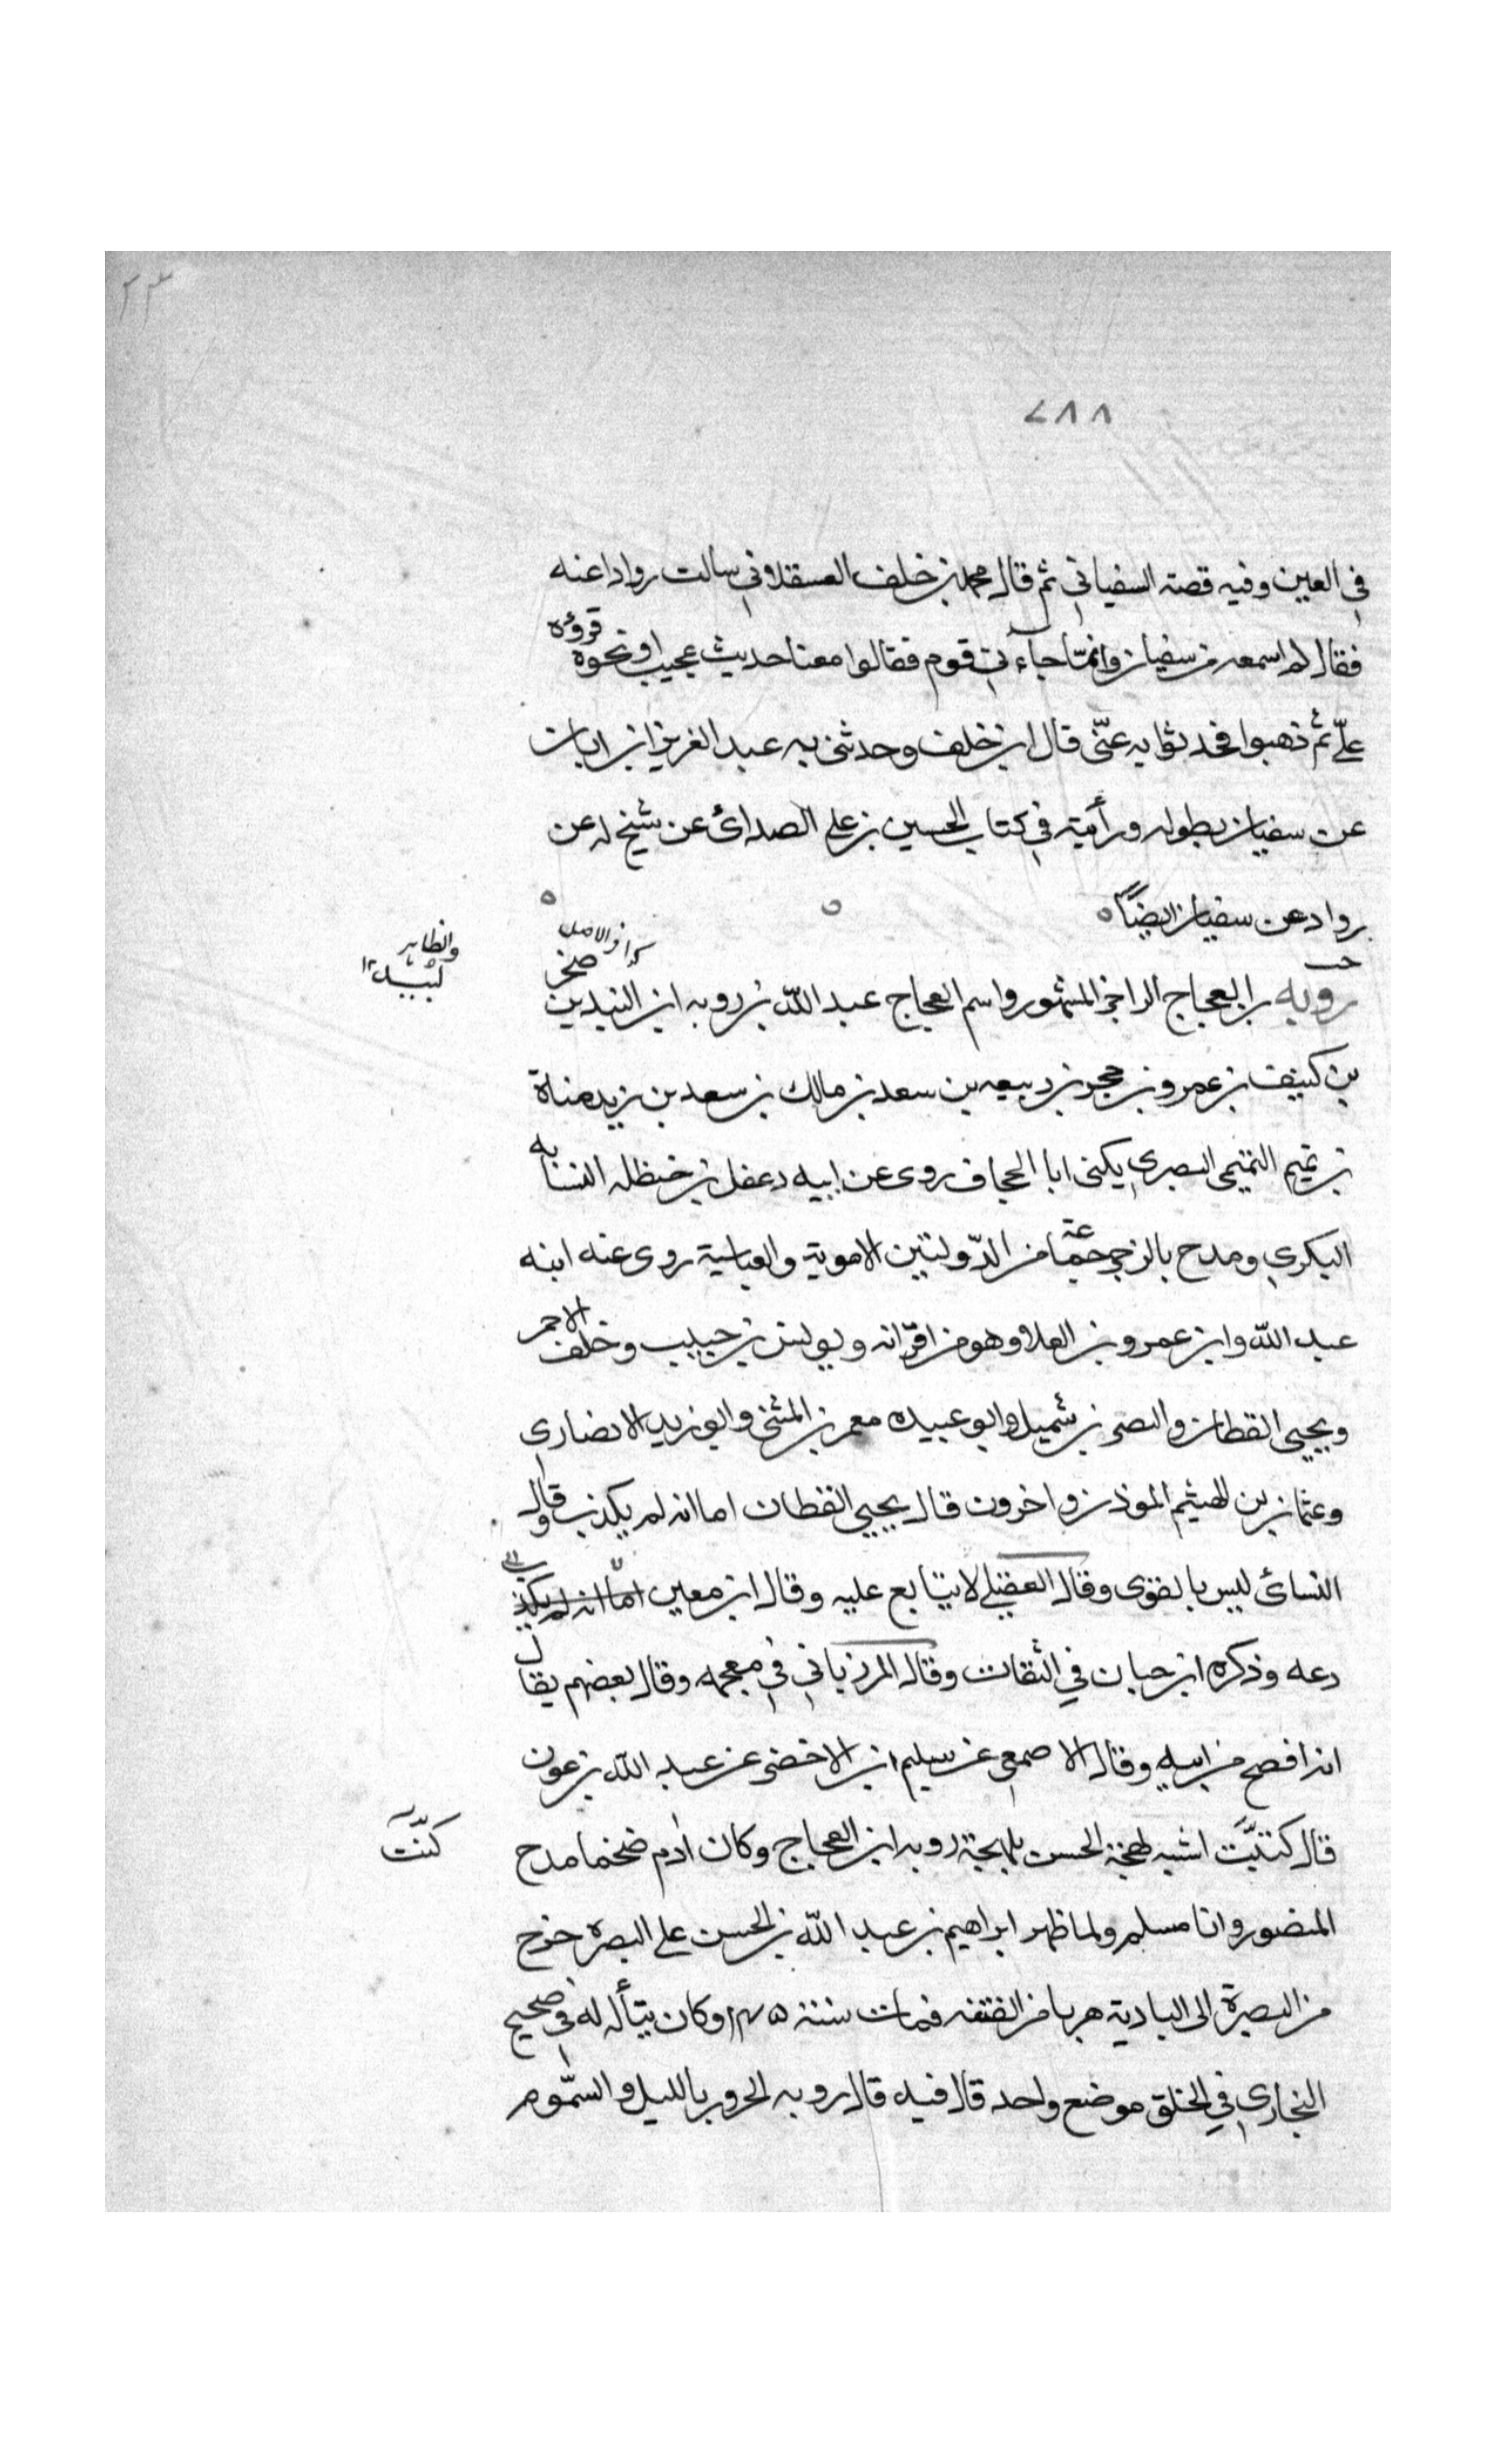 ٢٣
٧٨٨
في العين وفيه قصة السفياني ثم قال محمد بن خلف العسقلاني سالت روادا عنه
فقال لم اسمعه من سفيان وانما جاءني قوم فقالوا معنا حديث عجيب او نحوه قرؤه
عليّ ثم ذهبوا فحدثوا به عنّي قال ابن خلف وحدثني به عبد العزيز ابن ابان
عن سفيان بطوله ورأيته في كتاب الحسين بن علي الصدائ عن شيخ له عن
رواد عن سفيان ايضاً
كذا في الاصل
والظاهر
لبيد ١٢
خت
روبه بن العجاج الراجز المشهور واسم العجاج عبد الله بن روبه ابن البيد بن صخر
بن كنيف بن عمرو بن حجر بن ربيعه بن سعد بن مالك بن سعد بن زيد مناة
بن تميم التميمي البصري يكنى ابا الجحاف روى عن ابيه دعفل بن حنظله النسابه
البكري ومدح بالرجز جماعة من الدّولتين الاموية والعباسية روى عنه ابنه
عبد الله وابن عمرو بن العلا وهو من اقرانه ويونس بن حبيب وخلف الاحمر
ويحيي القطان والنضر بن شميل وابو عبيده معمر بن المثنى وابو زيد الانصاري
وعثمان بن الهيثم الموذن واخرون قال يحيي القطان اما انه لم يكذب وقال
النسائ ليس بالقوى وقال العقيلي لا يتابع عليه وقال ابن معين اما انه لم يكذب
دعه وذكره ابن حبان في الثقات وقال المرزباني في معجمه وقال بعضهم يقال
انه افصح من ابيه وقال الاصمعي عن سليم ابن الاخضر عن عبد الله بن عون
كنت
قال كنت اشبه لهجة الحسن بلهجة روبه ابن العجاج وكان ادم ضخما مدح
المنصور وابا مسلم ولما ظهر ابراهيم بن عبد الله بن الحسن على البصره خرج
من البصرة الى البادية هربا من الفتنه فمات سنة ١٤٥ وكان يتأله له في صحيح
البخاري في الخلق موضع واحد قال فيه قال روبه الحرور بالليل والسمّوم